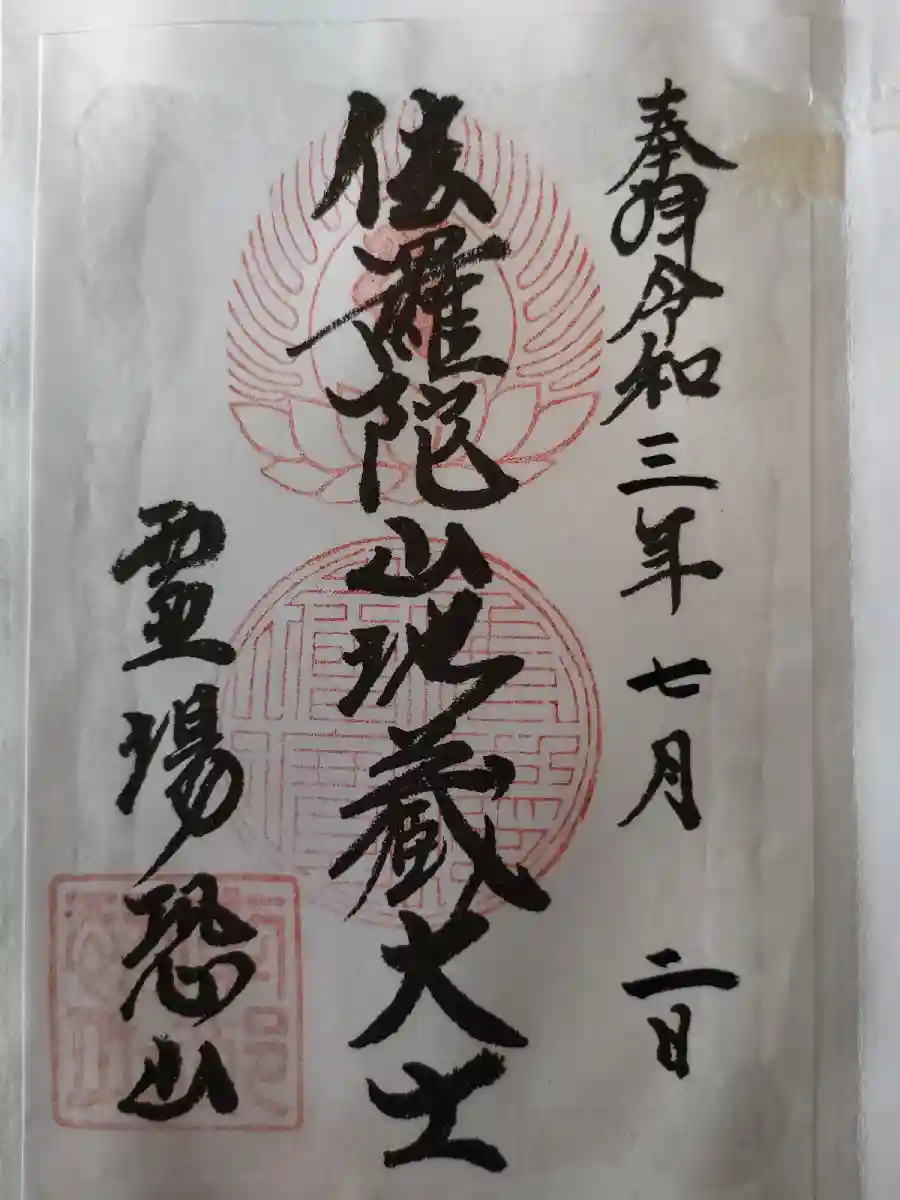 奉拝 令和三年七月 二日
伽羅陀山地蔵大士
霊場恐山